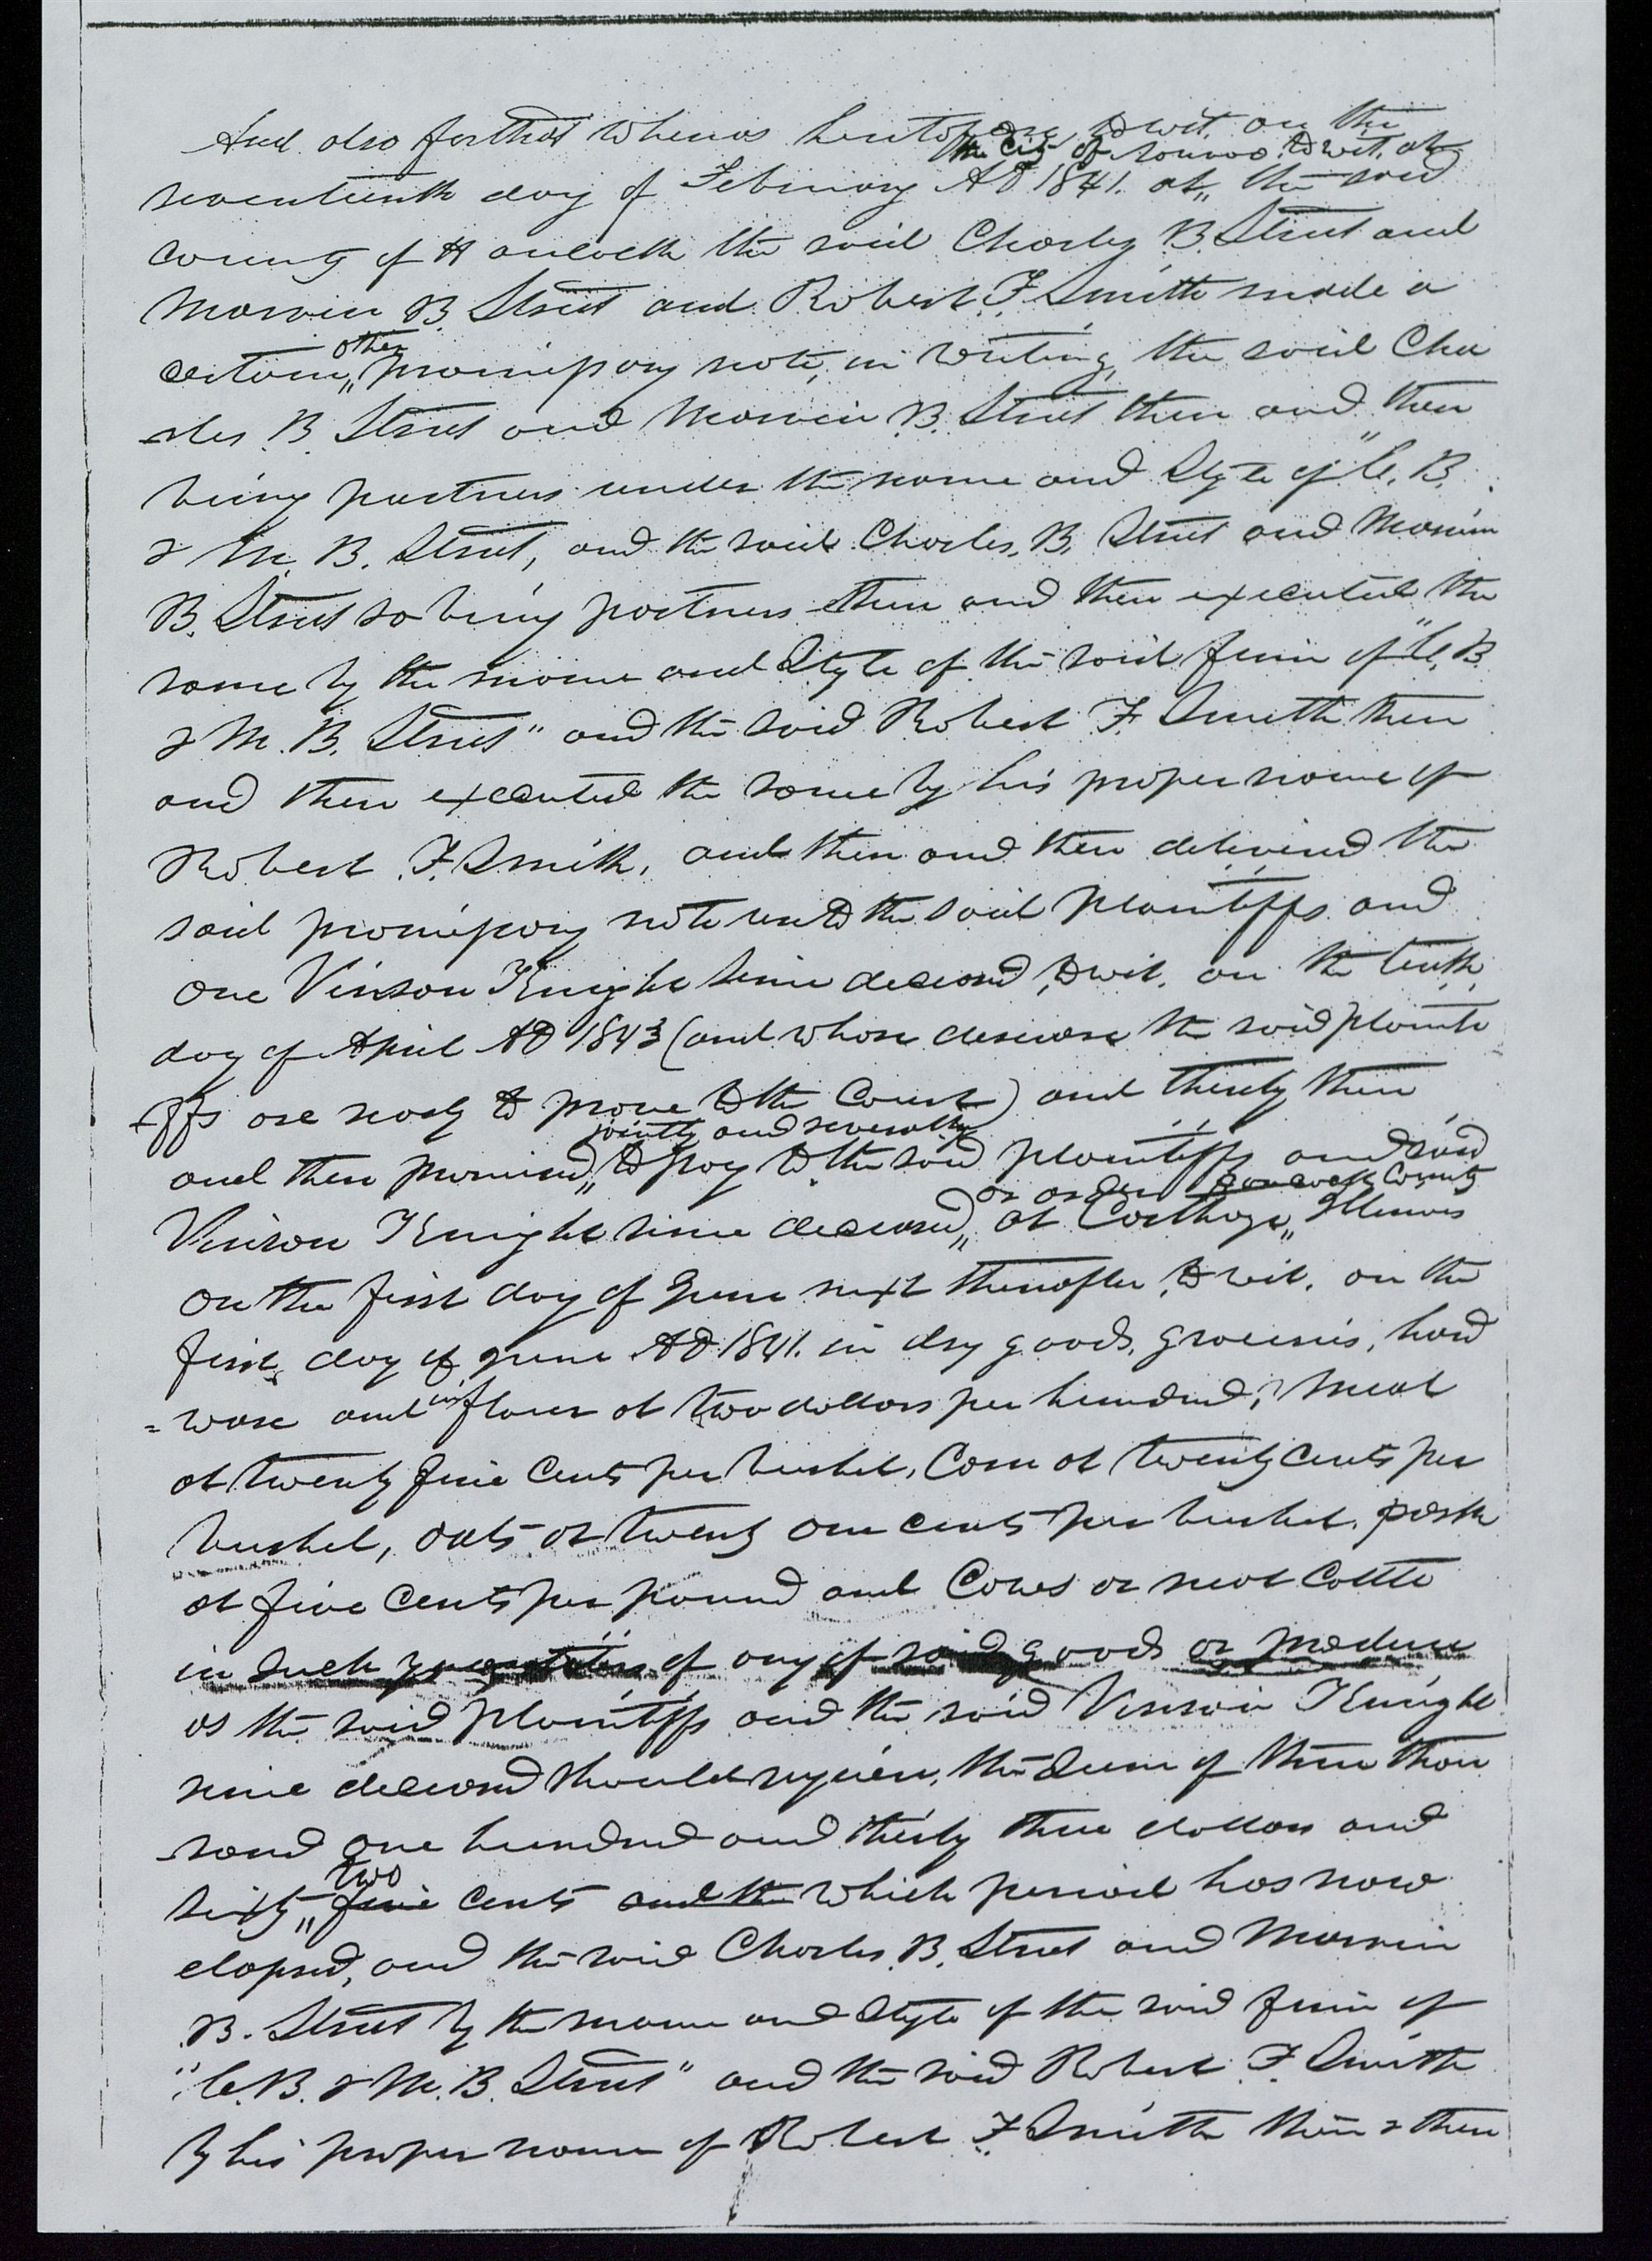 And also for that whereas heretofore towit, on the
the City of Nauvoo, towit, at
seventeenth day of February AD 1841. at,, the said
County of Hancock the said Charles B. Street and
Marvin B. Street and Robert F. Smith made a
other
certain,, promissory note, in writing, the said Cha
-rles B. Street and Marvin B. Street then and there
being partners under the name and Style of "C. B.
& M. B. Street, and the said Charles, B, Street and Marvin
B. Street so being partners then and there executed the
same by the name and Style of the said firm of "C. B.
& M. B. Street" and the said Robert F. Smith then
and there executed the same by his proper name of
Robert F. Smith, and then and there delivered the
said promissory note unto the said plaintiffs and
one Vinson Knight since deceased, towit, on the tenth
day of April AD 1843 (and whose decease the said plainti
-ffs are ready to prove to the Court) and thereby then
jointly and severally
and there promised,, to pay to the said plaintiffs and said
or order Hancock County
Vinson Knight since deceased,, at Carthage,, Illinois
on the first day of June next thereafter, towit, on the
first day of June AD 1841. in dry goods, groceries, hard
in
= ware and flour at two dollars per hundred, meal
at twenty five cents per bushel, Corn at twenty cents per
bushel, oats at twenty one cents per bushel, pork
at five cents per pound and Cows or neat Cattle
in such quantities of any of said goods or produce
as the said plaintiffs and the said Vinson Knight
since deceased should require, the sum of three thou
-sand one hundred and thirty three dollars and
two
sixty,, five cents and the which period has now
elapsed, and the said Charles B. Street and Marvin
B. Street by the name and Style of the said firm of
"C. B. & M. B. Street" and the said Robert F. Smith
by his proper name of Robert F. Smith then & there